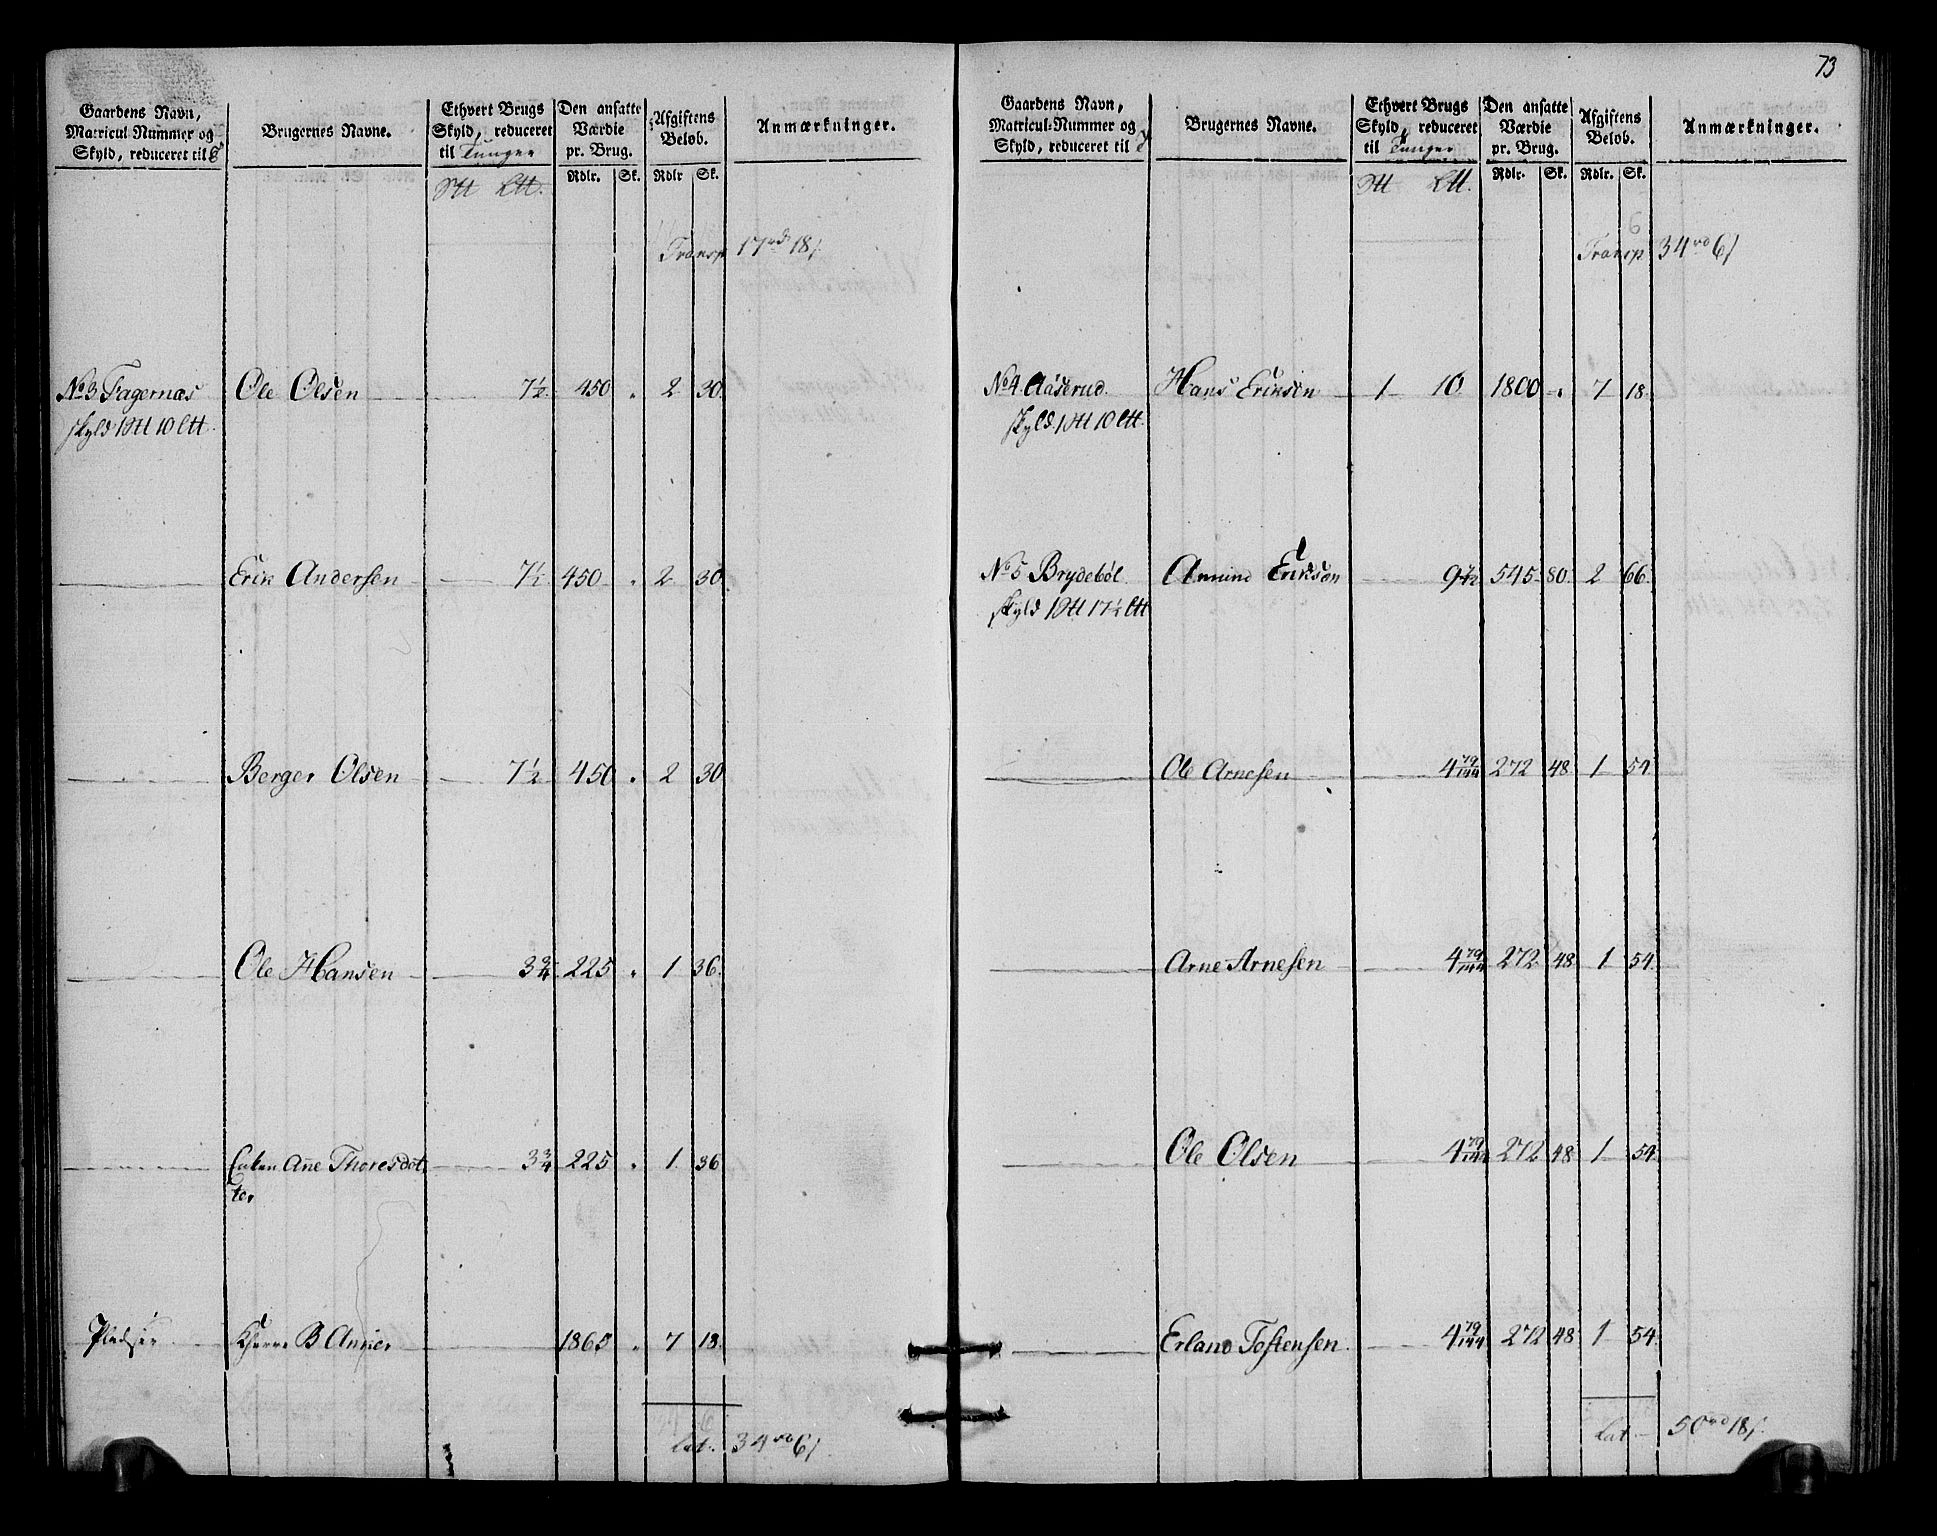 Gaardens Navn, Matricul Nummer og Skyld, reduceret til
Brugernes Navne.
Ethvert Brugs Skyld, reduceret til Tunger
Den ansatte Værdie pr. Brug.
Afgiftens Beløb.
Anmærkninger.
Rdlr. Sk. Rdlr Sk.
Transp 17rd 18s
No 3 Fagernæs Ole Olsen 7½ 450 " 2 30
skyld 1 10
Erik Andersen 7½ 450 " 2 30
Berger Olsen 7½ 450 " 2 30
Ole Hansen 3¾ 225 " 1 36
Enken Añe Thoresdot 3¾ 225 " 1 36
ter
Pladsen B Anker 1865 " 7 18
Lat. 34rd 6s
73
Gaardens Navn, Matricul-Nummer og Skyld, reduceret til
Brugernes Navne.
Ethvert Brugs Skyld, reduceret til Tunger
Den ansatte Værdie pr. Brug.
Afgiftens Beløb.
Anmærkninger.
Rdlr. Sk. Rdlr. Sk.
6
Transp 34rd 6s
No 4 Aaserud Hans Eriksen 1 10 1800 " 7 18
skyld 1 10
No 5 Brydebøl Amund Eriksøn 545 80 2 66
skyld 1 17½
Ole Arnesen 4 79/144 272 48 1 54
Arne Arnesen 4 79/144 272 48 1 54
Ole Olsen 4 79/144 272 48 1 54
Erland Tostensen 4 79/144 272 48 1 54
Lat 50rd 18s